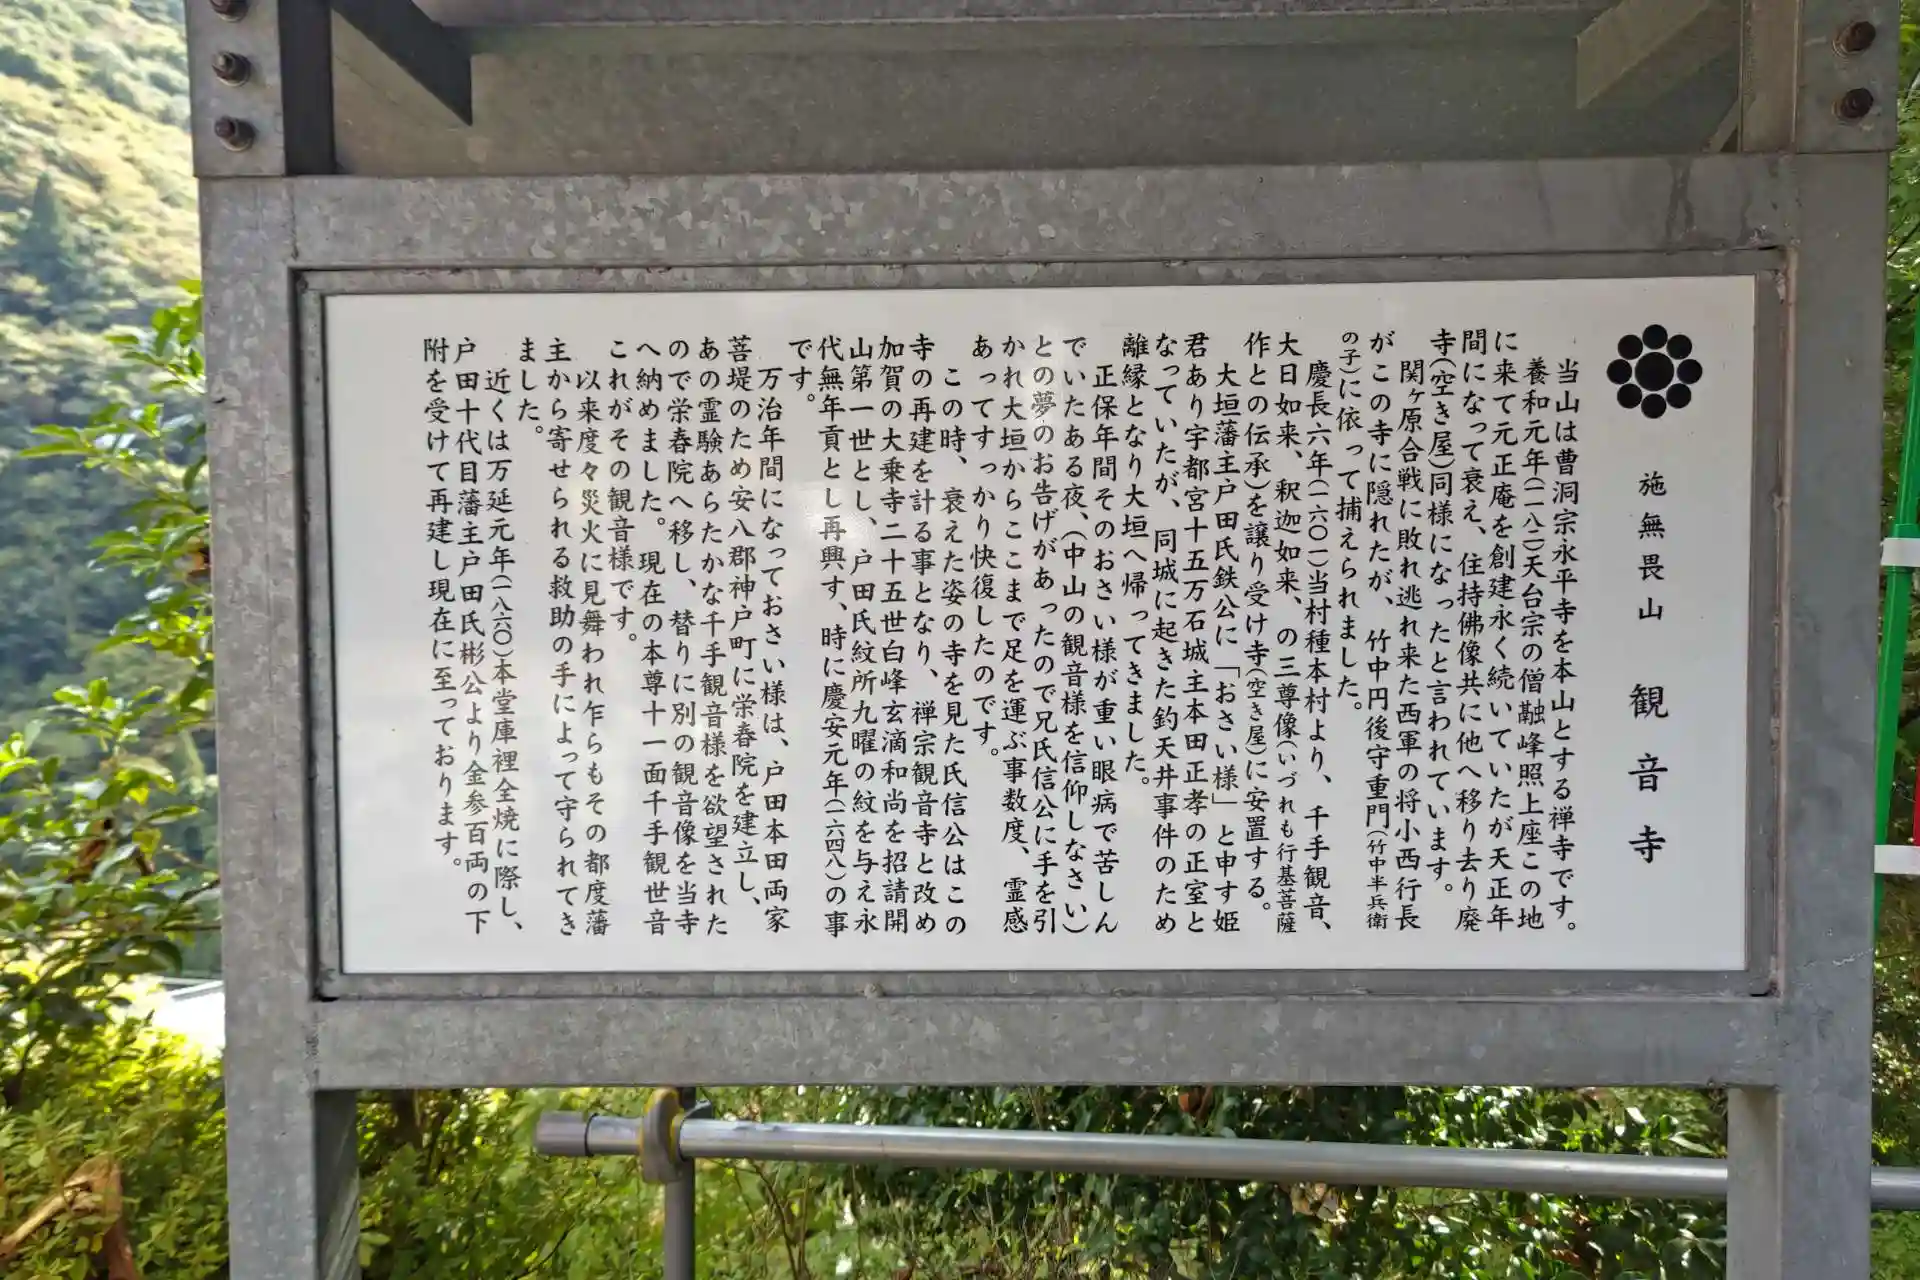 施無畏山 観音寺
当山は曹洞宗永平寺を本山とする禅寺です。
養和元年(一一八二)天台宗の僧融峰照上座この地
に来て元正庵を創建永く続いていたが天正年
間になって衰え、住持佛像共に他へ移り去り廃
寺(空き屋)同様になったと言われています。
関ヶ原合戦に敗れ逃れ来た西軍の将小西行長
がこの寺に隠れたが、竹中円後守重門(竹中半兵衛
の子)に依って捕えられました。
慶長六年(一六〇一)当村種本村より、千手観音、
大日如来、釈迦如来、の三尊像(いづれも行基菩薩
作との伝承)を譲り受け寺(空き屋)に安置する。
大垣藩主戸田氏鉄公に「おさい様」と申す姫
君あり宇都宮十五万石城主本田正孝の正室と
なっていたが、同城に起きた釣天井事件のため
離縁となり大垣へ帰ってきました。
正保年間そのおさい様が重い眼病で苦しん
でいたある夜、(中山の観音様を信仰しなさい)
との夢のお告げがあったので兄氏信公に手を引
かれ大垣からここまで足を運ぶ事数度、霊感
あってすっかり快復したのです。
この時、衰えた姿の寺を見た氏信公はこの
寺の再建を計る事となり、禅宗観音寺と改め
加賀の大乗寺二十五世白峰玄滴和尚を招請開
山第一世とし、戸田氏紋所九曜の紋を与え永
代無年貢とし再興す、時に慶安元年(一六四八)の事
です。
万治年間になっておさい様は、戸田本田両家
菩提のため安八郡神戸町に栄春院を建立し、
あの霊験あらたかな千手観音様を欲望された
ので栄春院へ移し、替りに別の観音像を当寺
へ納めました。現在の本尊十一面千手観世音
これがその観音様です。
以来度々災火に見舞われ乍らもその都度藩
主から寄せられる救助の手によって守られてき
ました。
近くは万延元年(一八六〇)本堂庫裡全焼に際し、
戸田十代目藩主戸田氏彬公より金参百両の下
附を受けて再建し現在に至っております。